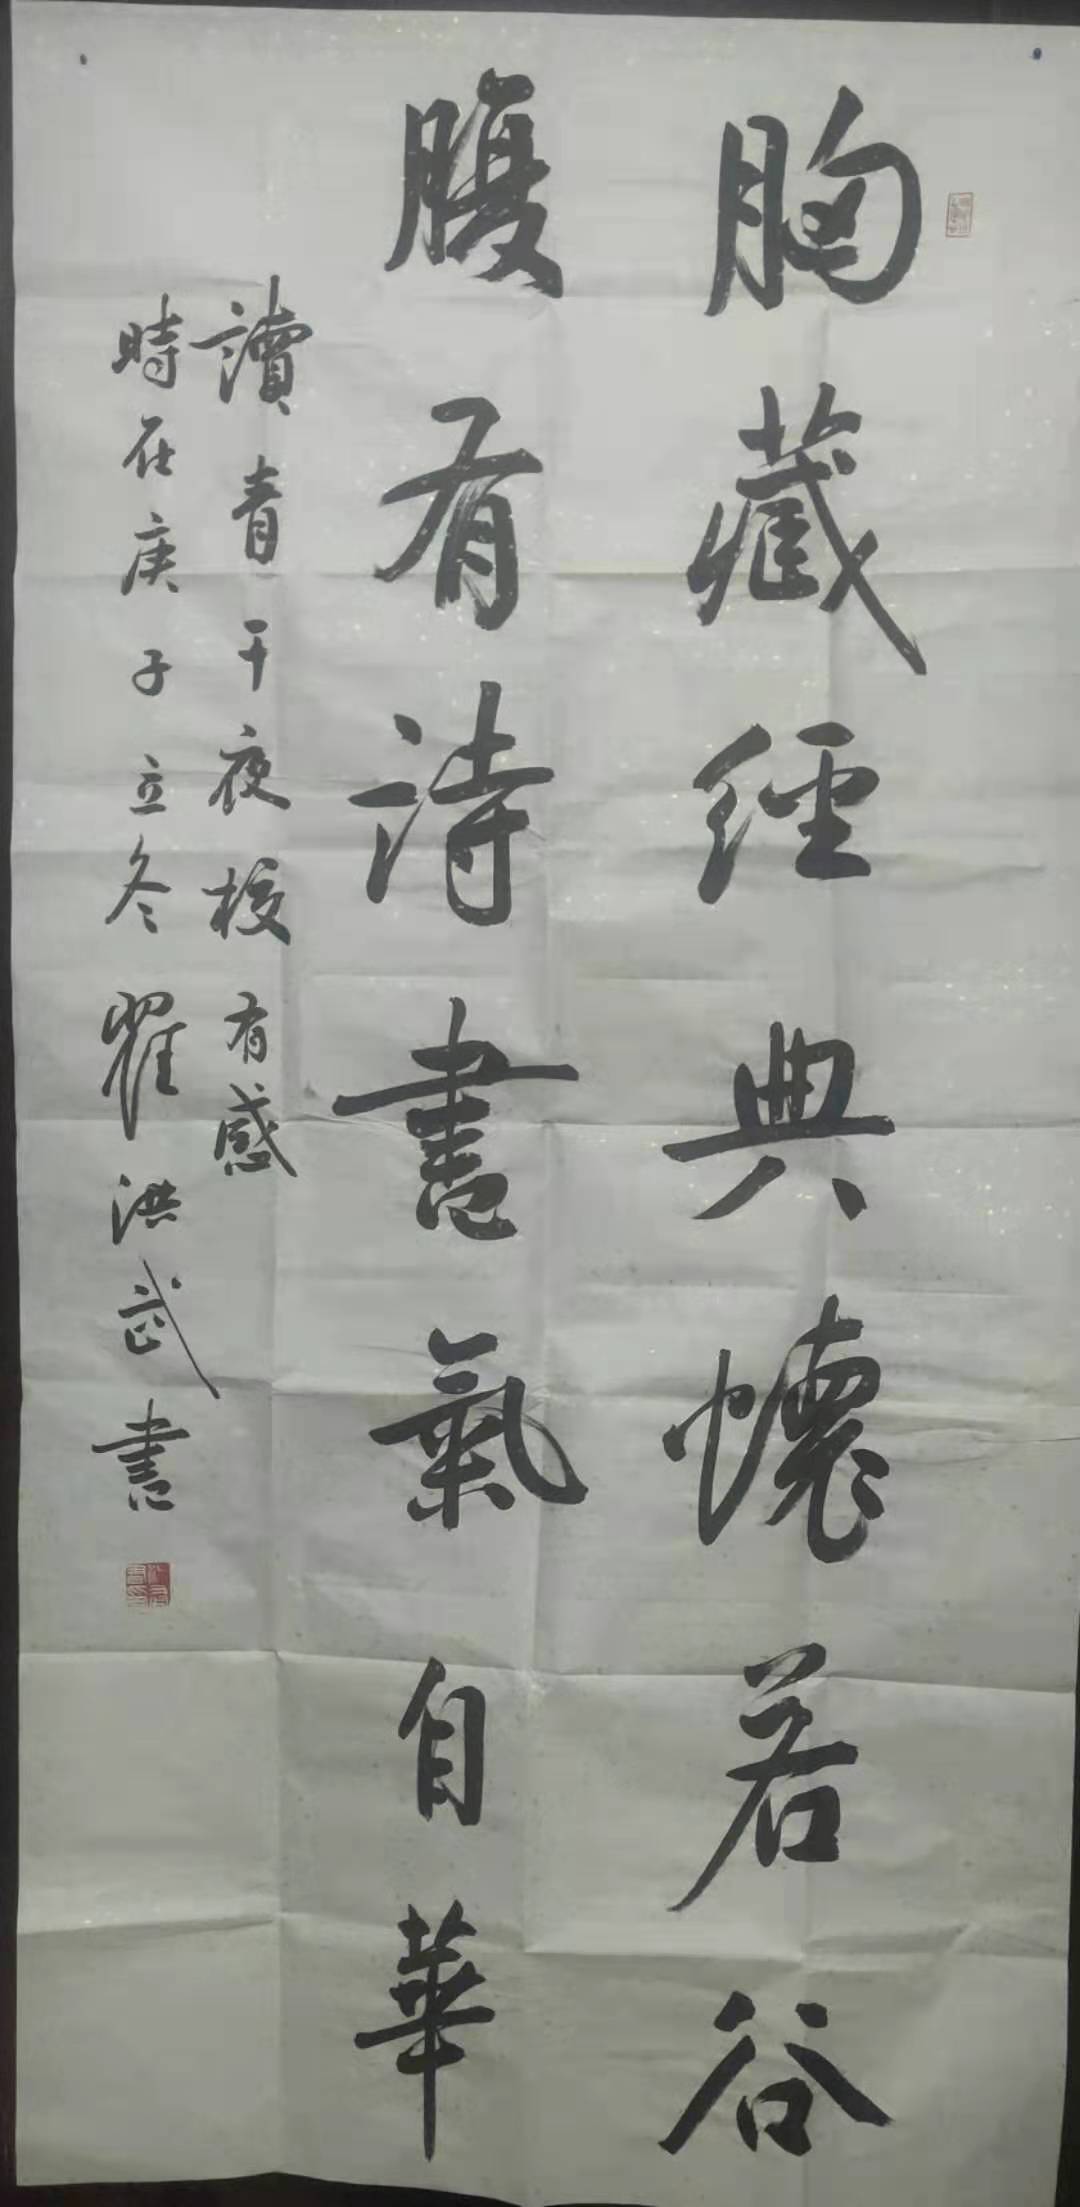 胸藏經典懷若谷
腹有詩書氣自華
讀青干夜校有感
時在庚子立冬 翟洪武書